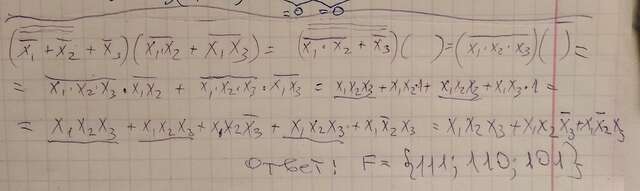 =0 =0
(x̄₁ + x̄₂ + x̄₃)(x̄₁x₂ + x̄₁x̄₃) = (x₁·x₂ + x̄₃)( ) = (x₁·x₂·x₃)( ) =
= x₁·x₂·x₃·x₁x₂ + x₁·x₂·x₃·x₁x₃ = x₁x₂x₃ + x₁x₂·1 + x₁x₂x₃ + x₁x₃·1 =
= x₁x₂x₃ + x₁x₂x₃ + x₁x₂x̄₃ + x₁x₂x₃ + x₁x̄₂x₃ = x₁x₂x₃ + x₁x₂x̄₃ + x₁x̄₂x₃
Ответ: F = {111; 110; 101}